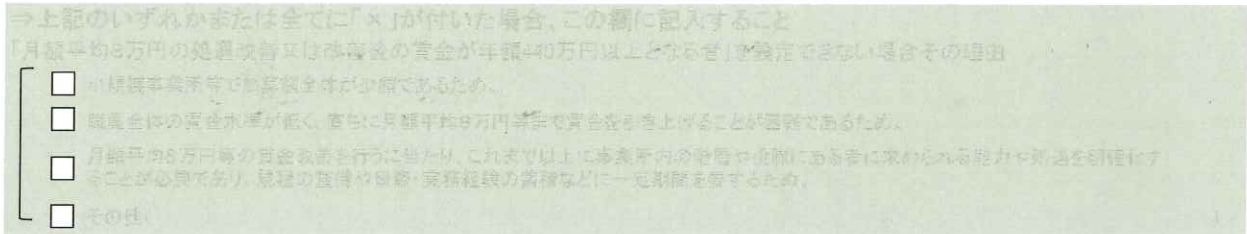 ⇒上記のいずれかまたは全てに「×」が付いた場合、この欄に記入すること
「月額平均8万円の処遇改善又は改善後の賃金が年額440万円以上となる者」を設定できない場合その理由
小規模事業所等で加算額全体が少額であるため。
職員全体の賃金水準が低く、直ちに月額平均8万円等まで賃金を引き上げることが困難であるため。
月額平均8万円等の賃金改善を行うに当たり、これまで以上に事業所内の階層や役職にある者に求められる能力や処遇を明確化す
ることが必要であり、規程の整備や研修・実務経験の蓄積などに一定期間を要するため。
その他（ ）